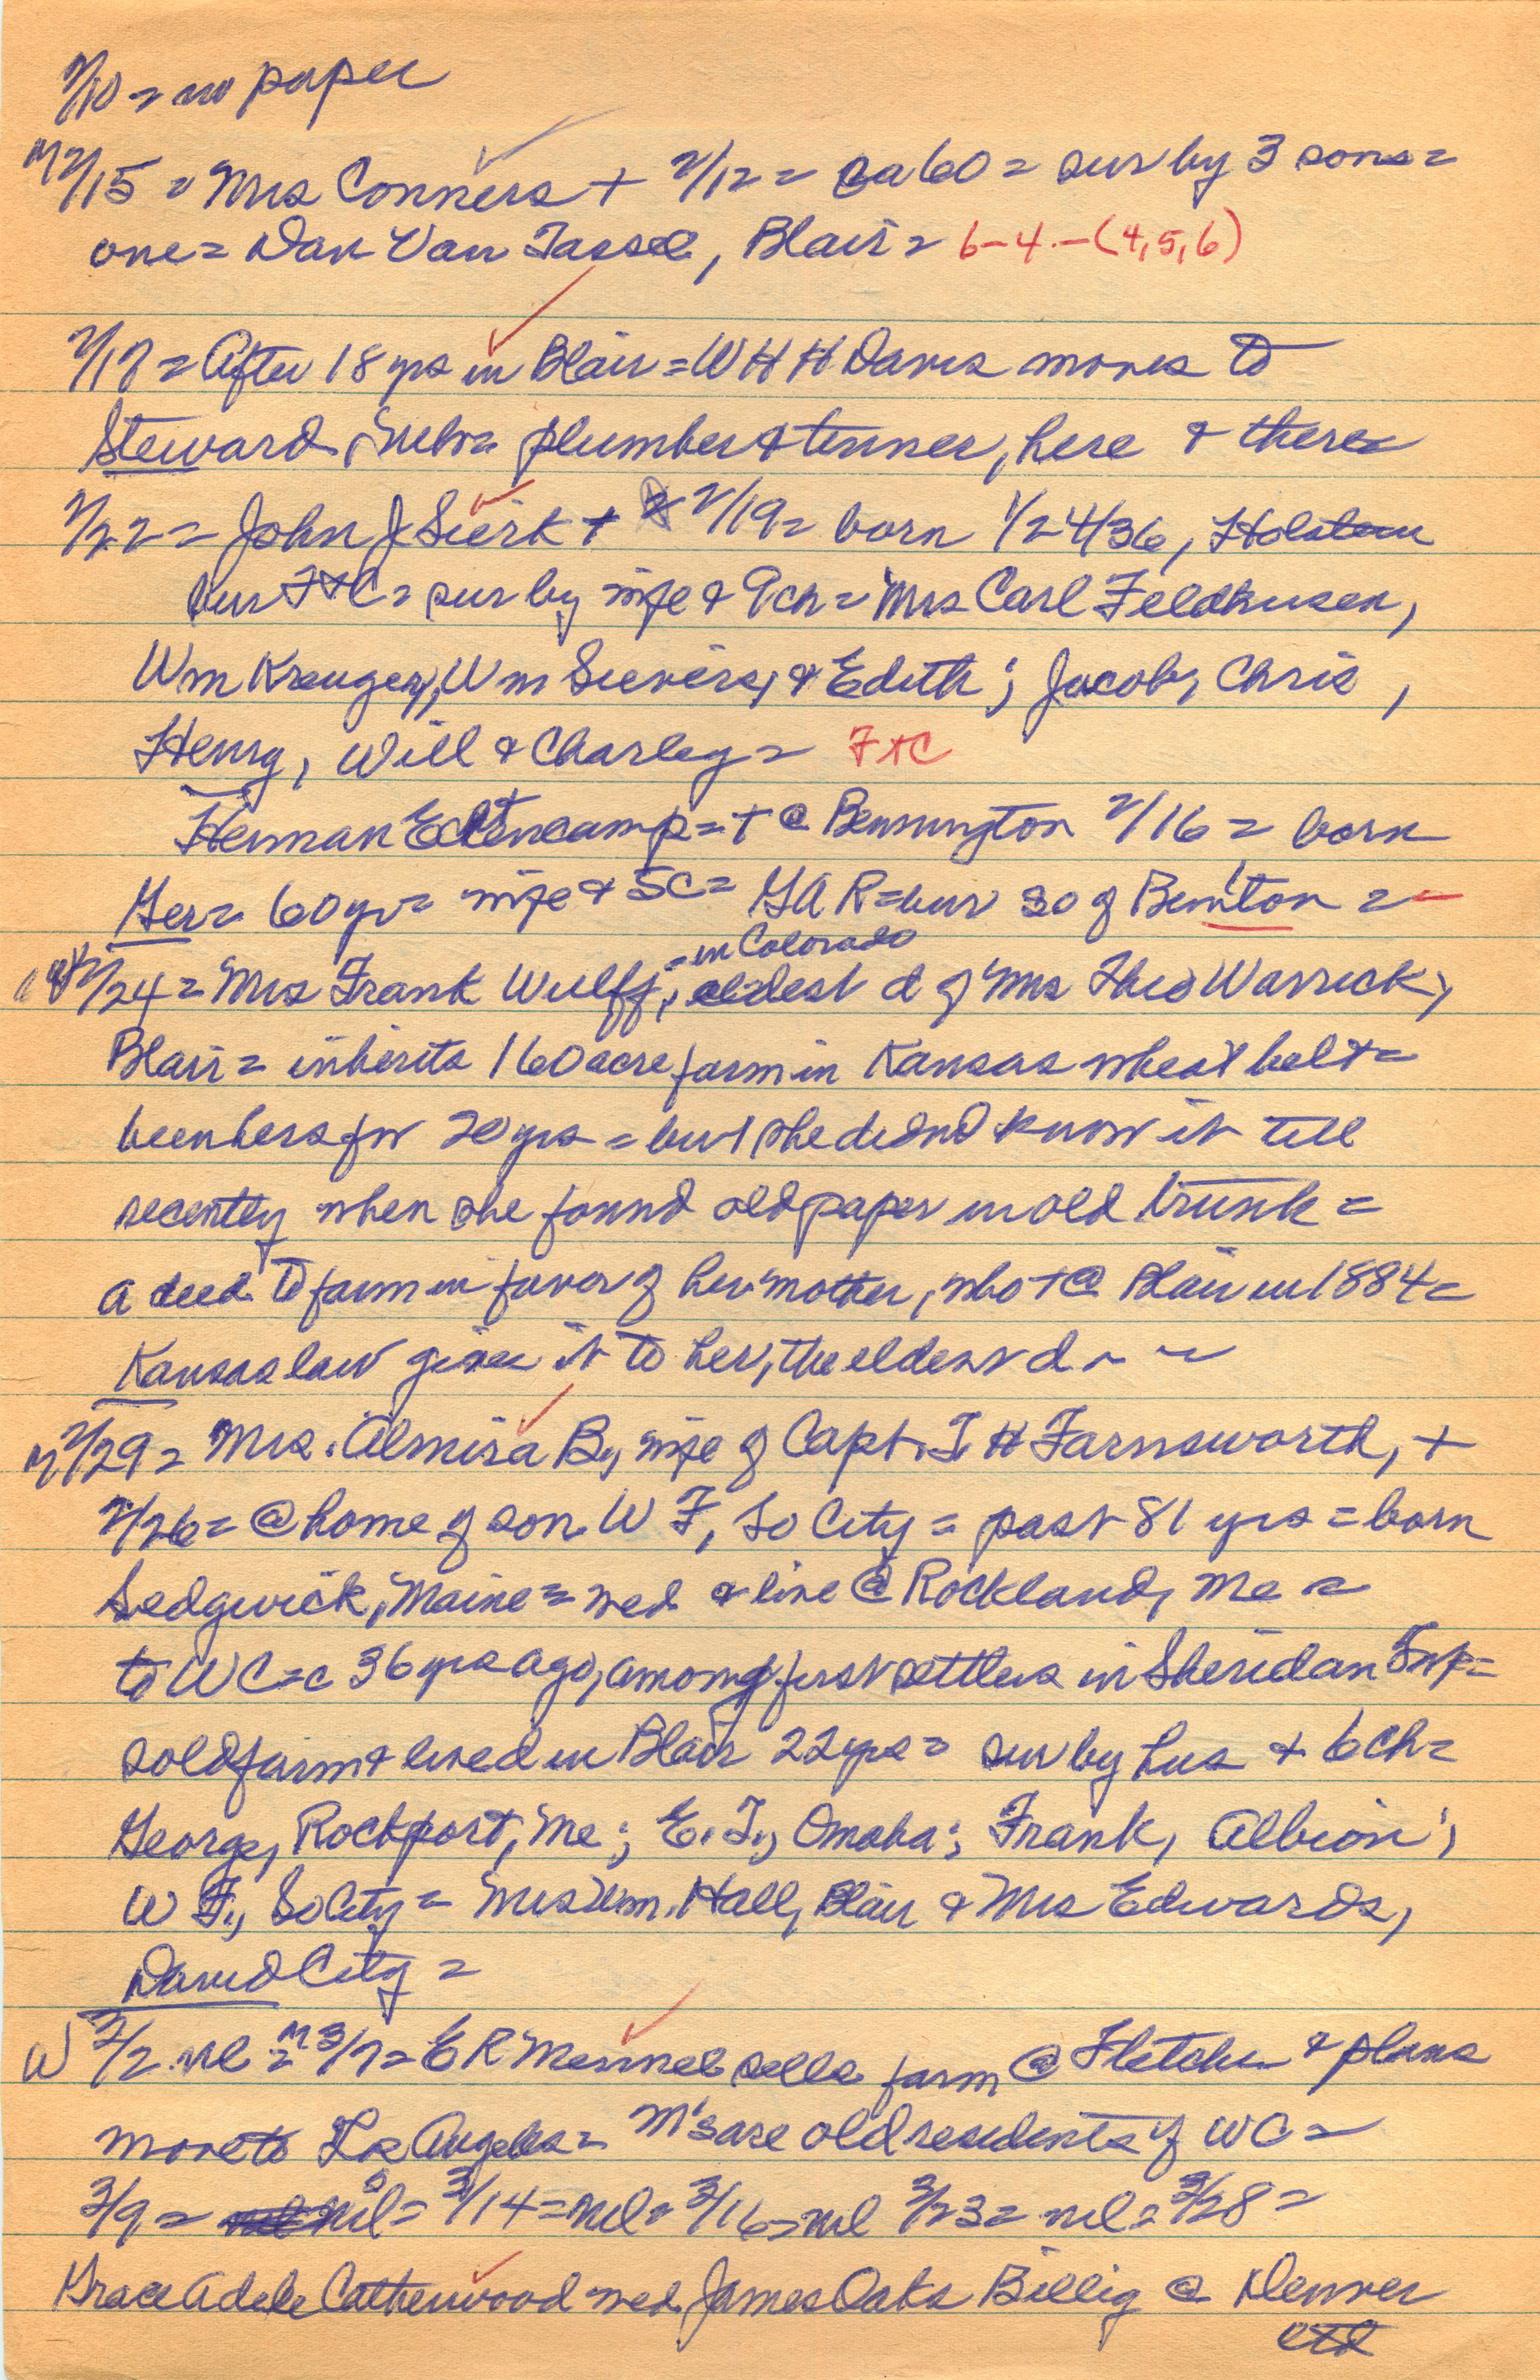 2/10 = no paper
M 2/15 = Mrs Conners + 2/12 = ca 60 = sur by 3 sons =
one = Dan Van Tassel, Blair = 6-4-(4,5,6)
2/17 = After 18 yrs in Blair = W H H Davis moves to
Steward, Neb = plumber & tinner, here & there =
2/22 = John J Sierk + 2/19 = born 1/24/36, Holstein
bur F+C = sur by wife & 9ch = Mrs Carl Feldhusen,
Wm Kreuger, Wm Sievers, & Edith; Jacob, Chris,
Henry, Will & Charley = F+C
Herman Echtencamp = + @ Bennington 2/16 = born
Ger = 60 yr = wife & 5C = GAR = bur so of Ben'ton =
2/24 = Mrs Frank Wulff, = in Colorado eldest d of Mrs Theo Warrick,
Blair = inherits 160 acre farm in Kansas wheat belt =
been hers for 20 yrs = but she didnd know it till
recently when she found old paper in old trunk =
a deed to farm in favor of her mother, who + @ Blair in 1884 =
Kansas law gives it to her, the eldest d ~ ~
M 2/29 = Mrs. Almira B, wife of Capt. T H Farnsworth, +
2/26 = @ home of son W F, So City = past 81 yrs = born
Sedgwick, Maine = wed & live @ Rockland, Me =
to WC = c 36 yrs ago, among first settlers in Sheridan Twp =
sold farm & lived in Blair 22 yrs = sur by hus & 6 ch =
George, Rockport, Me; E. T., Omaha; Frank, Albion;
W F., So City = Mrs Wm. Hall, Blair & Mrs Edwards,
David City =
W 3/2 nil = M 3/7 = E R Mermel sells farm @ Fletcher & plans
move to Los Angeles = M's are old residents of WC =
3/9 = nil = 3/14 = nil = 3/16 = nil 3/23 = nil = 3/28 =
Grace Adele Catherwood wed James Oaks Billig @ Denver